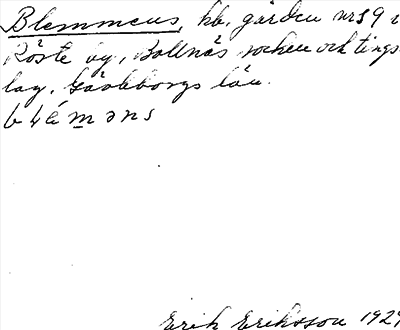 Blemmens, hb. gården nr 39 i
Röste by, Bollnäs socken och tings-
lag, Gävleborgs län.
Erik Eriksson 192